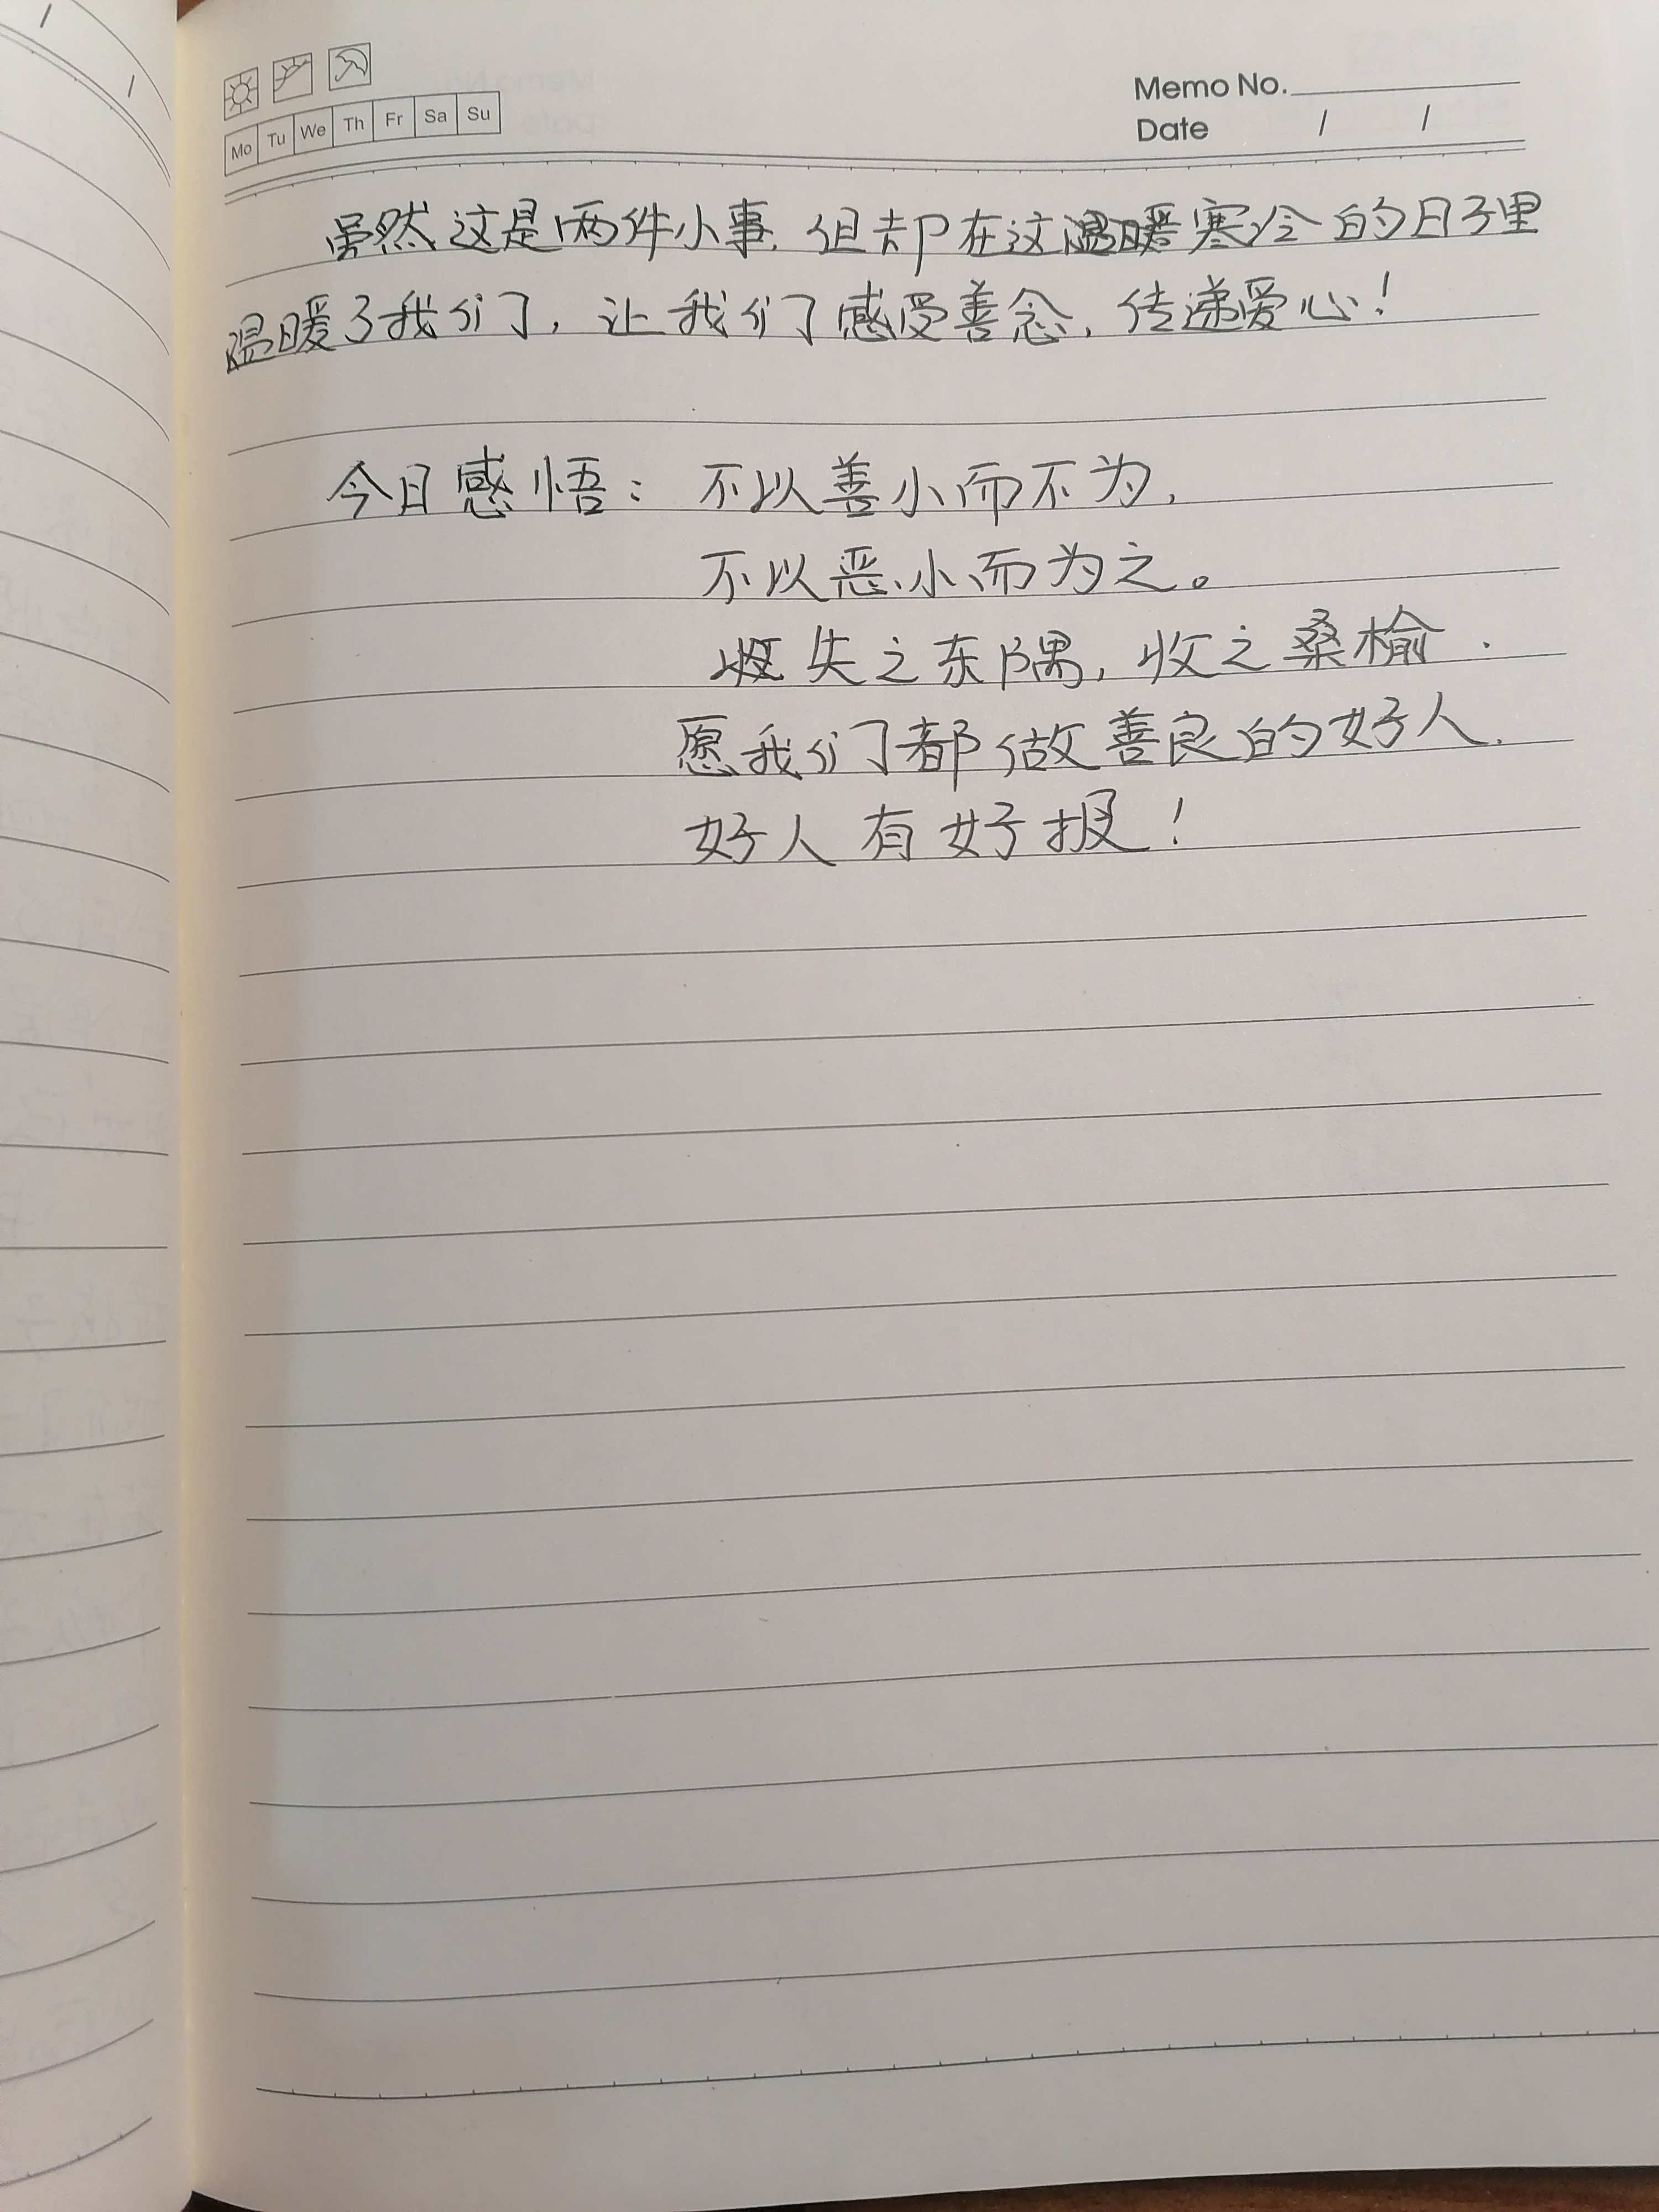 Memo No.
Mo Tu We Th Fr Sa Su
Date / /
虽然这是两件小事,但却在这寒冷的日子里
温暖了我们,让我们感受善念,传递爱心!
今日感悟: 不以善小而不为,
不以恶小而为之。
失之东隅,收之桑榆.
愿我们都做善良的好人.
好人有好报!